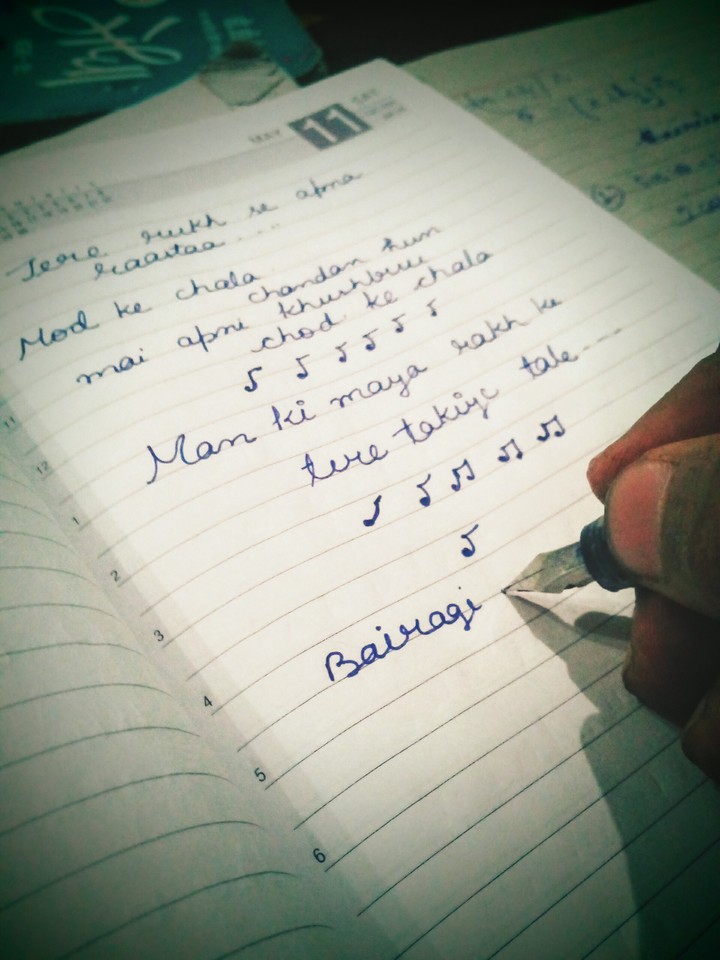 MAY 11 SAT
Tere rukh se apna
raastaa....
Mod ke chala
chandan hun
mai apni khushbuu
chod ke chala
♪ ♪ ♪ ♪ ♪ ♪
Man ki maya rakh ke
tere takiye tale----
♪ ♪ ♫ ♫ ♫
♪
Bairagi
11
12
1
2
3
4
5
6